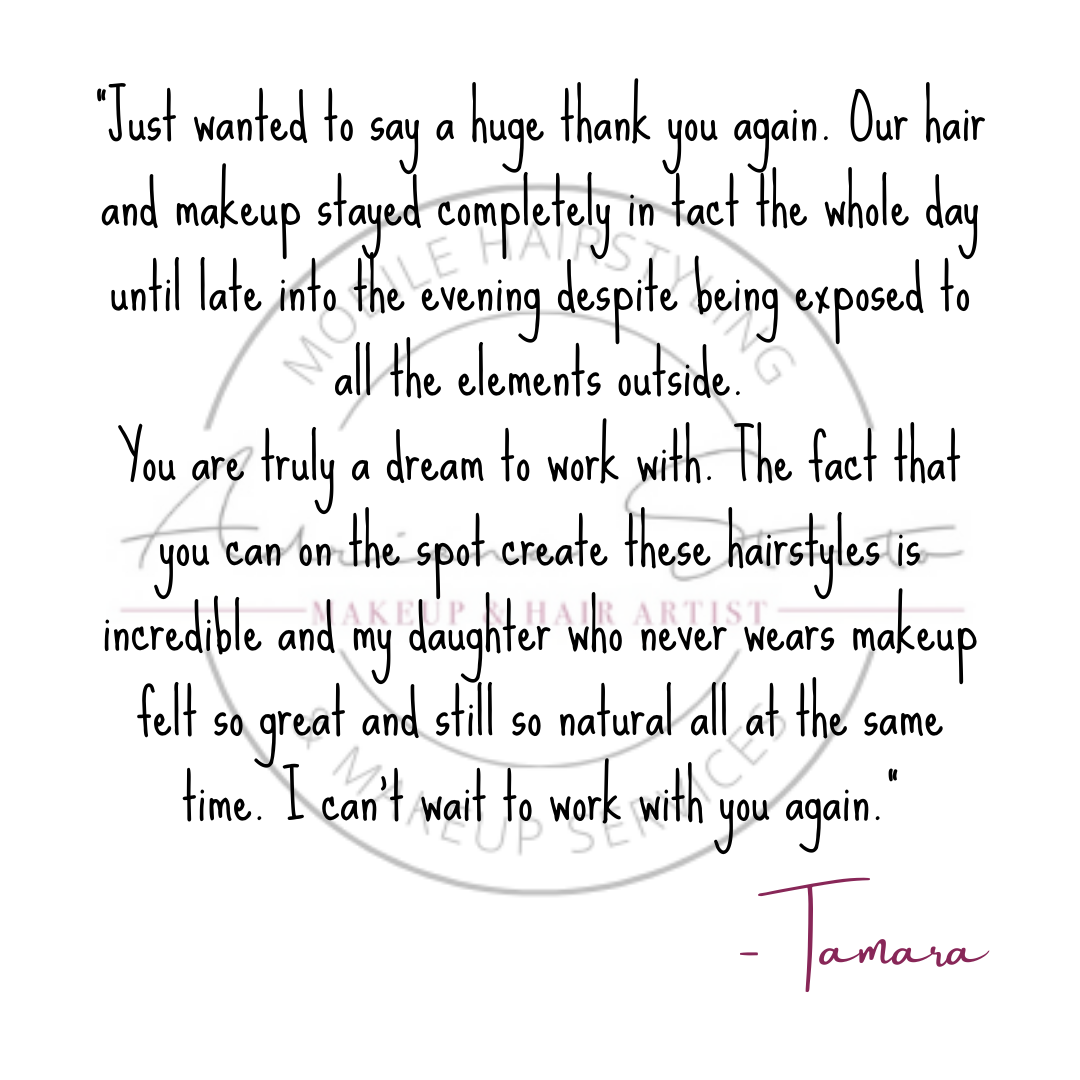 "Just wanted to say a huge thank you again. Our hair
and makeup stayed completely in tact the whole day
until late into the evening despite being exposed to
all the elements outside.
You are truly a dream to work with. The fact that
you can on the spot create these hairstyles is
incredible and my daughter who never wears makeup
felt so great and still so natural all at the same
time. I can't wait to work with you again."
- Tamara
MOBILE HAIRSTYLING
MAKEUP & HAIR ARTIST
& MAKEUP SERVICES